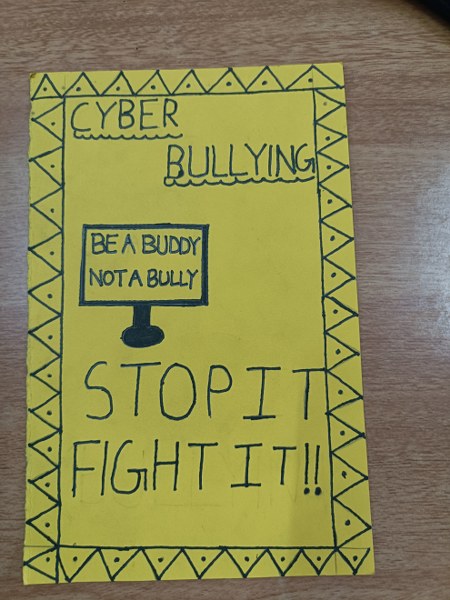 CYBER
BULLYING
BE A BUDDY
NOT A BULLY
STOP IT
FIGHT IT!!